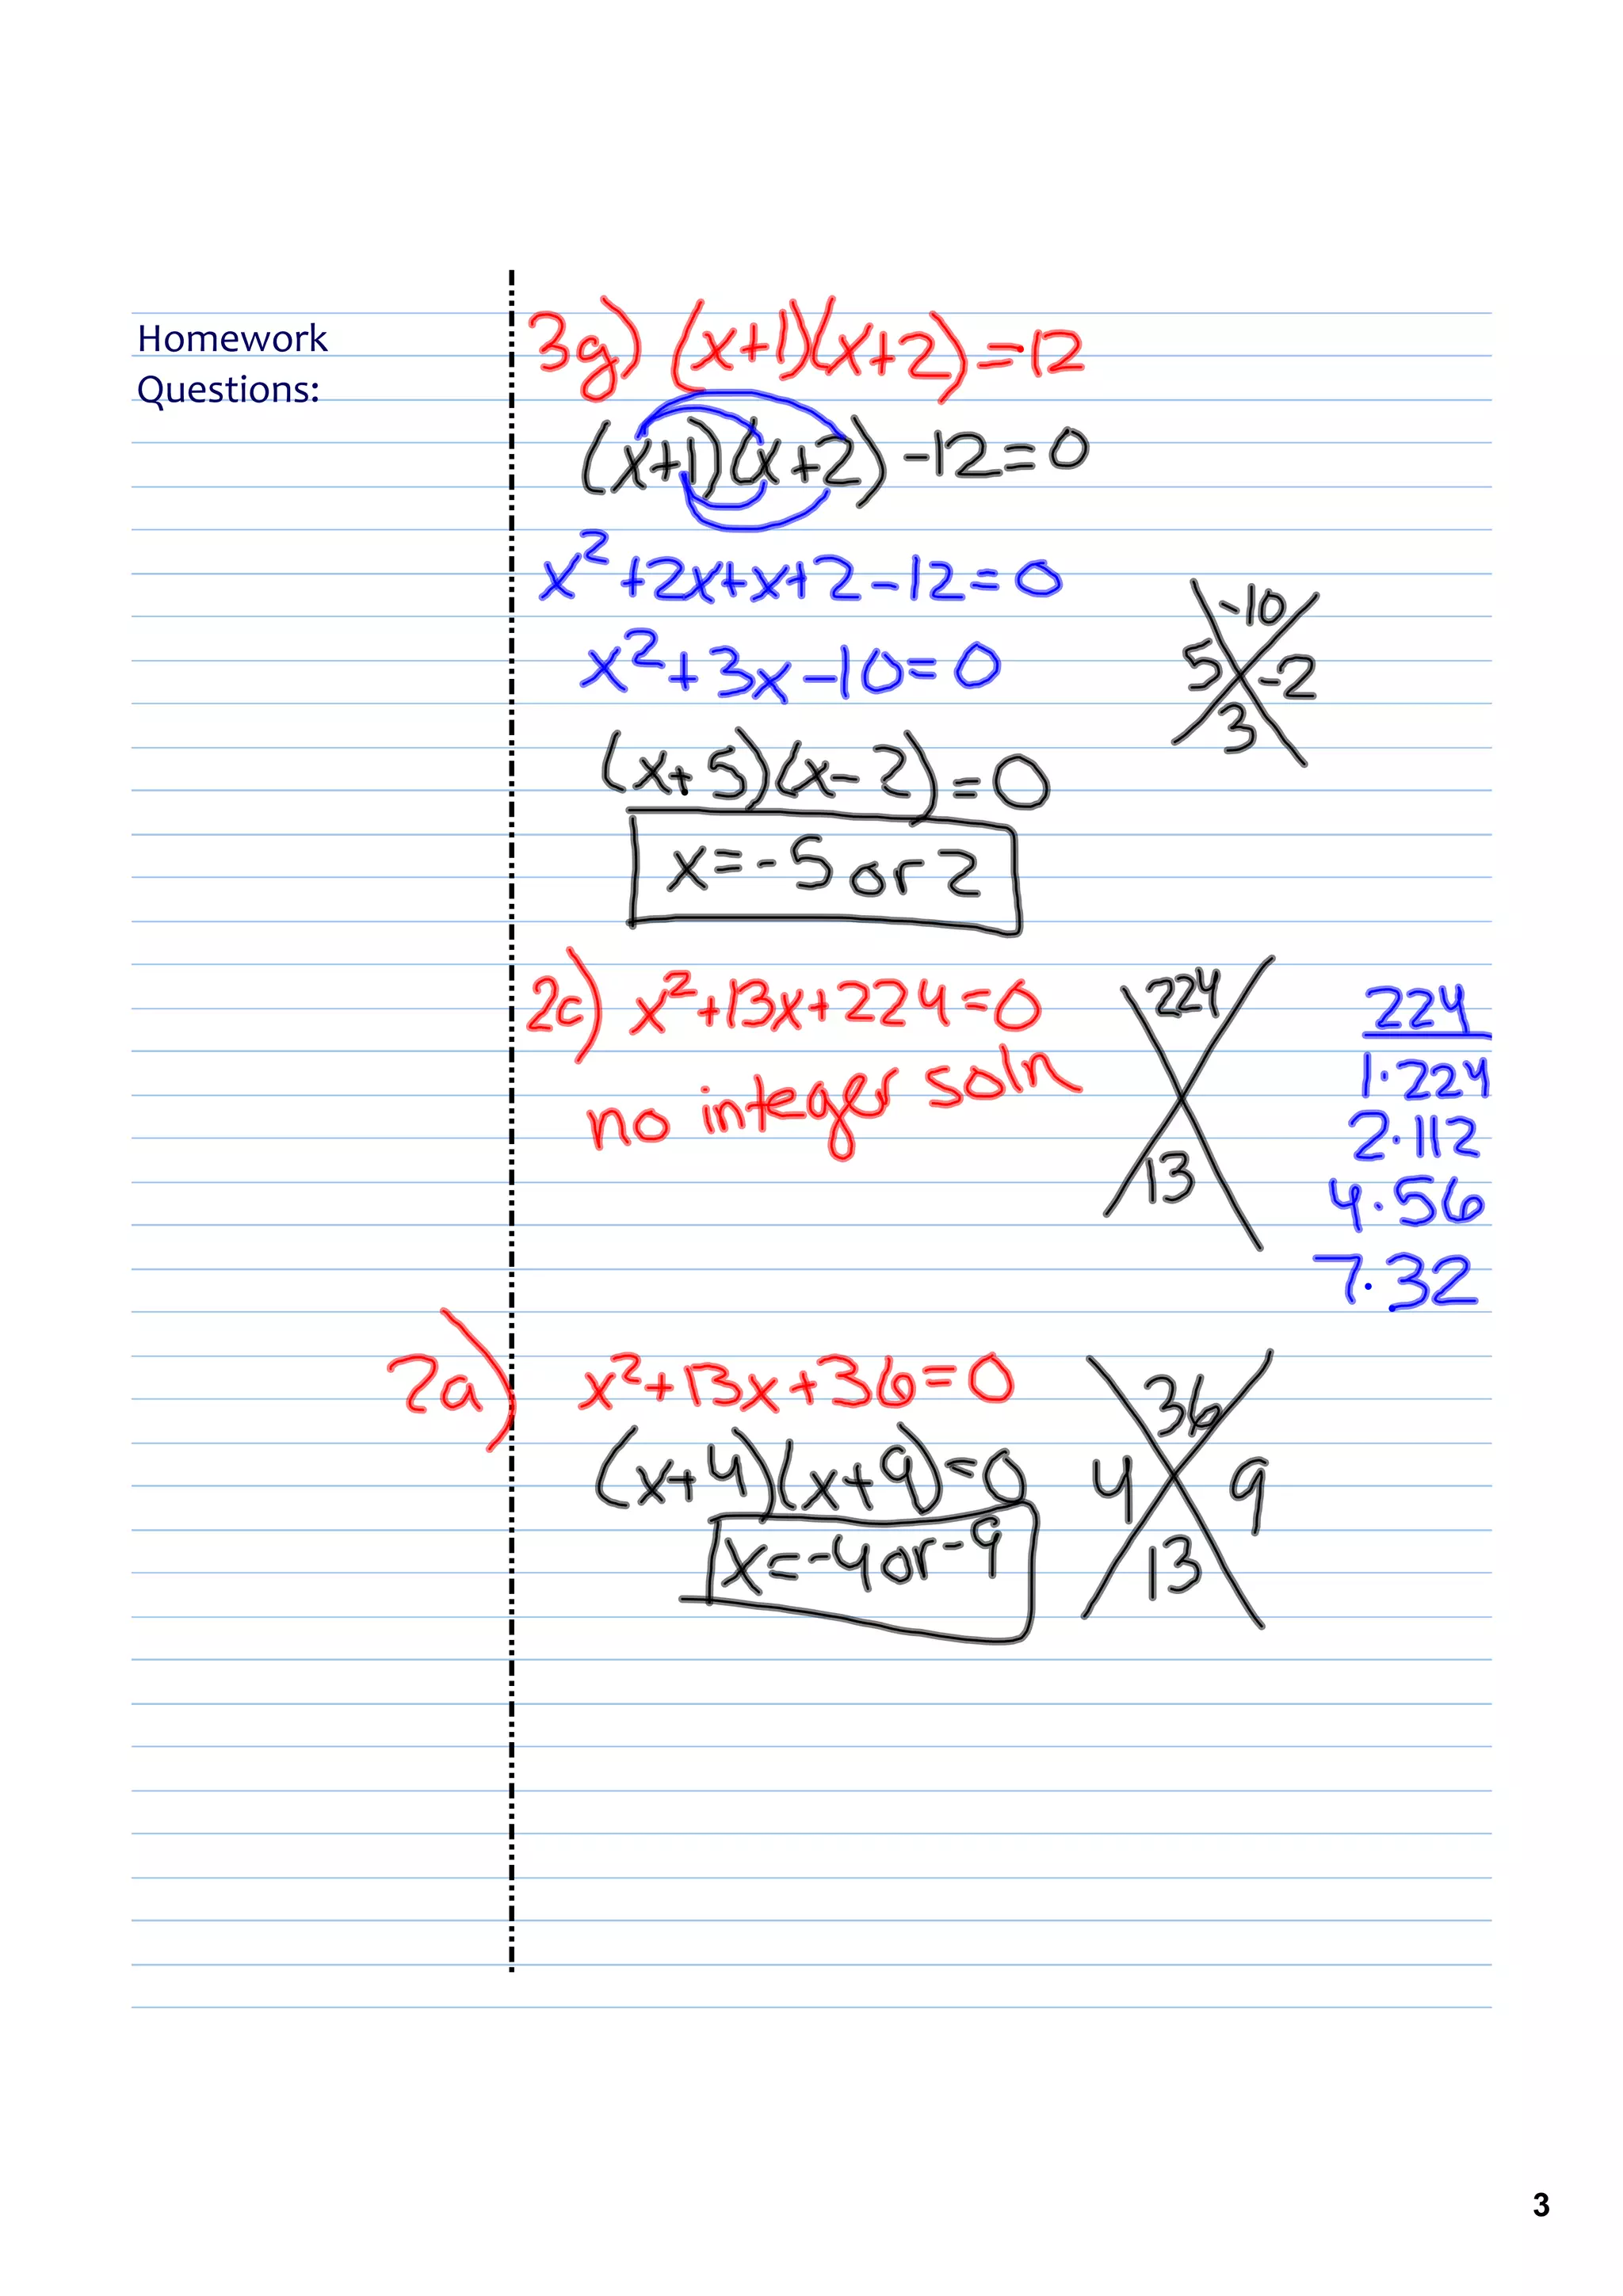 Homework
Questions:
3g) (x+1)(x+2)=12
(x+1)(x+2)-12=0
x²+2x+x+2-12=0
x²+3x-10=0
-10
5 -2
3
(x+5)(x-2)=0
x=-5 or 2
2c) x²+13x+224=0
no integer soln
224
13
224
1·224
2·112
4·56
7·32
2a) x²+13x+36=0
(x+4)(x+9)=0
x=-4 or -9
36
4 9
13
3